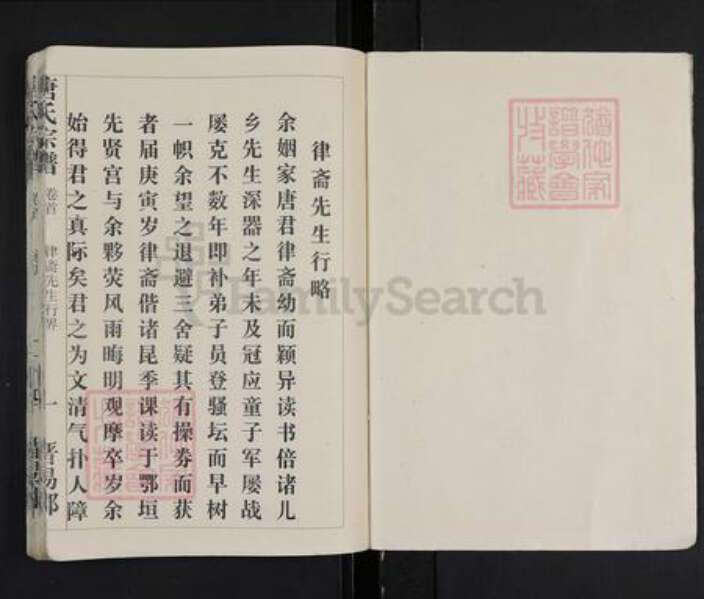 律斋先生行略
余姻家唐君律斋幼而颖异读书倍诸儿
乡先生深器之年未及冠应童子军屡战
屡克不数年即补弟子员登骚坛而早树
一帜余望之退避三舍疑其有操券而获
者届庚寅岁律斋偕诸昆季课读于鄂垣
先贤宫与余夥荧风雨晦明观摩卒岁余
始得君之真际矣君之为文清气扑人障
唐氏宗谱
卷首
律斋先生行略
一
晋易郡
FamilySearch